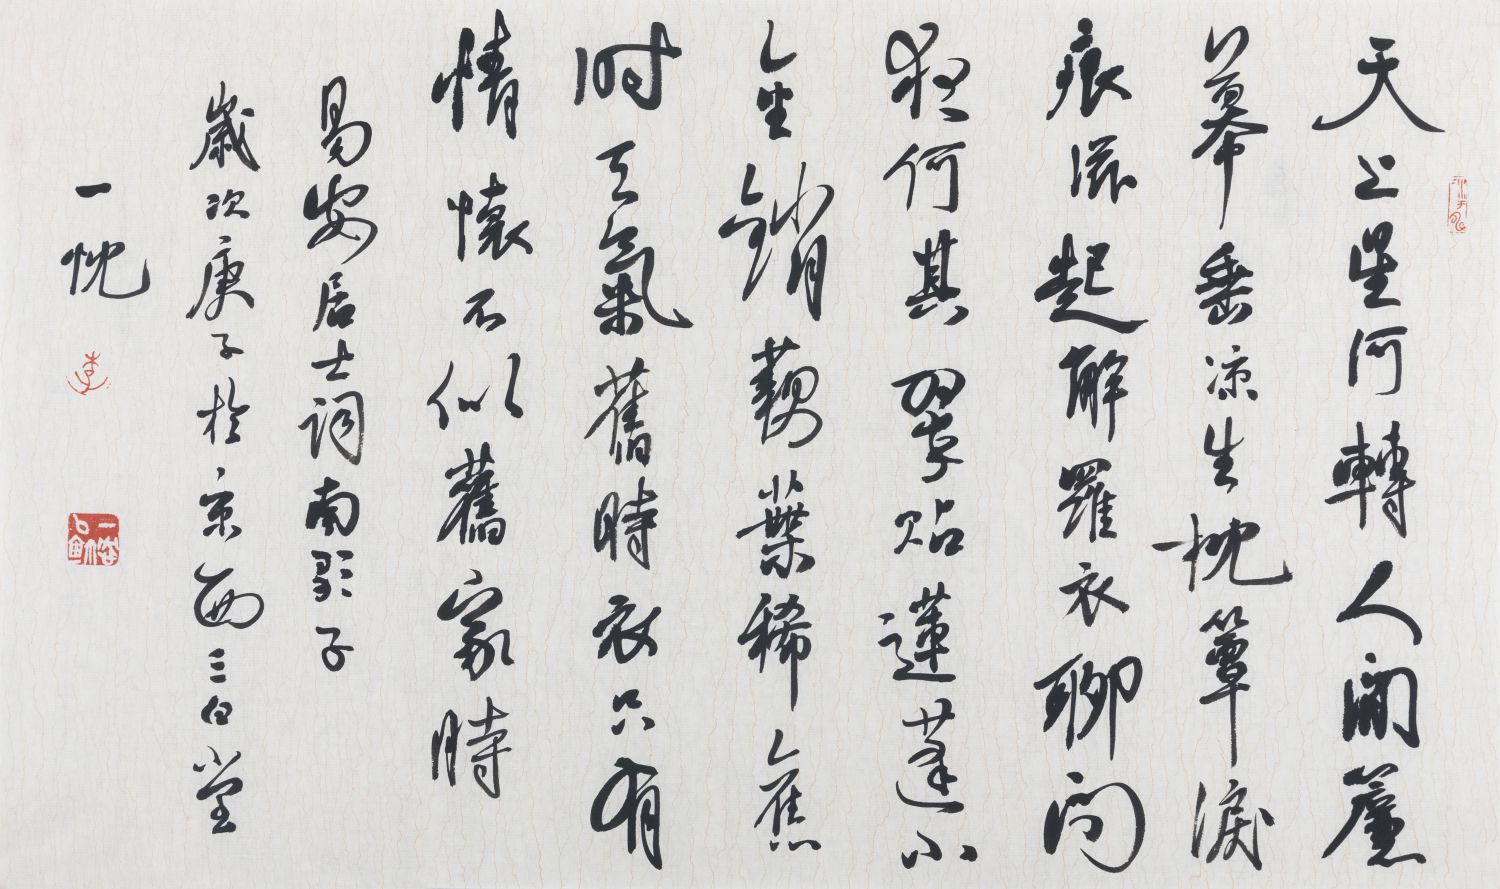 天上星河轉人間簾
幕垂凉生枕簟淚
痕滋起解羅衣聊問
夜何其翠貼蓮蓬小
金銷藕葉稀舊
时天氣舊時衣只有
情懷不似舊家時
易安居士詞南歌子
歲次庚子於京西三白堂
一忱
李